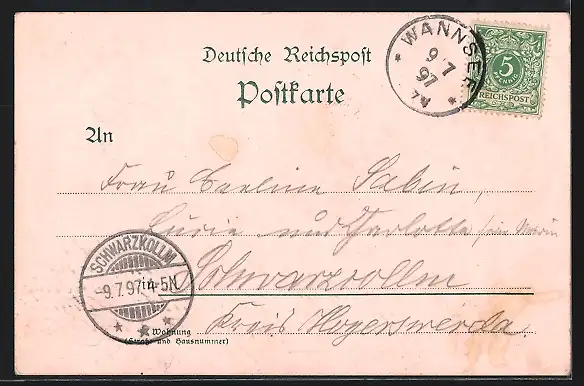 Deutsche Reichspost
Postkarte
WANNSEE
9 7
97
5
PFENNIG
REICHSPOST
An
Frau Sabin,
und Charlotte
SCHWARZKOLLM
-9.7.97 4-5N
in Schwarzcollm
Wohnung
(Straße und Hausnummer)
Kreis Hoyerswerda.